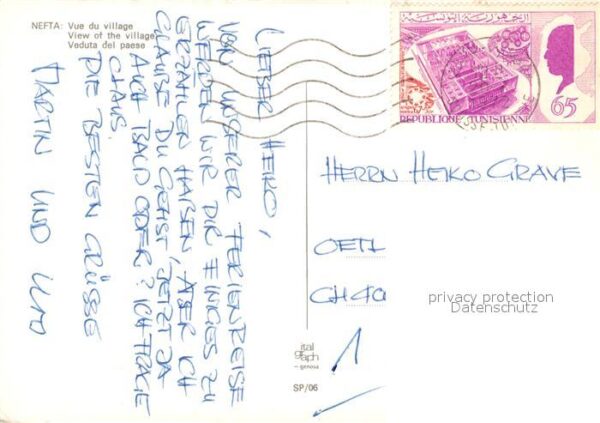 NEFTA: Vue du village
View of the village
Veduta del paese
LIEBER HEIKO,
VON UNSERER FERIENREISE
WERDEN WIR DIR EINIGES ZU
ERZÄHLEN HABEN. ABER ICH
GLAUBE DU GEHST JETZT DA
AUCH BALD ODER? ICH FRAGE
CHAUS.
DIE BESTEN GRÜSSE
MARTIN UND
الجمهورية التونسية
REPUBLIQUE TUNISIENNE
65
HERRN HEIKO GRAVE
OETL
CH 40
1
privacy protection
Datenschutz
ital
graph
genova
SP/06